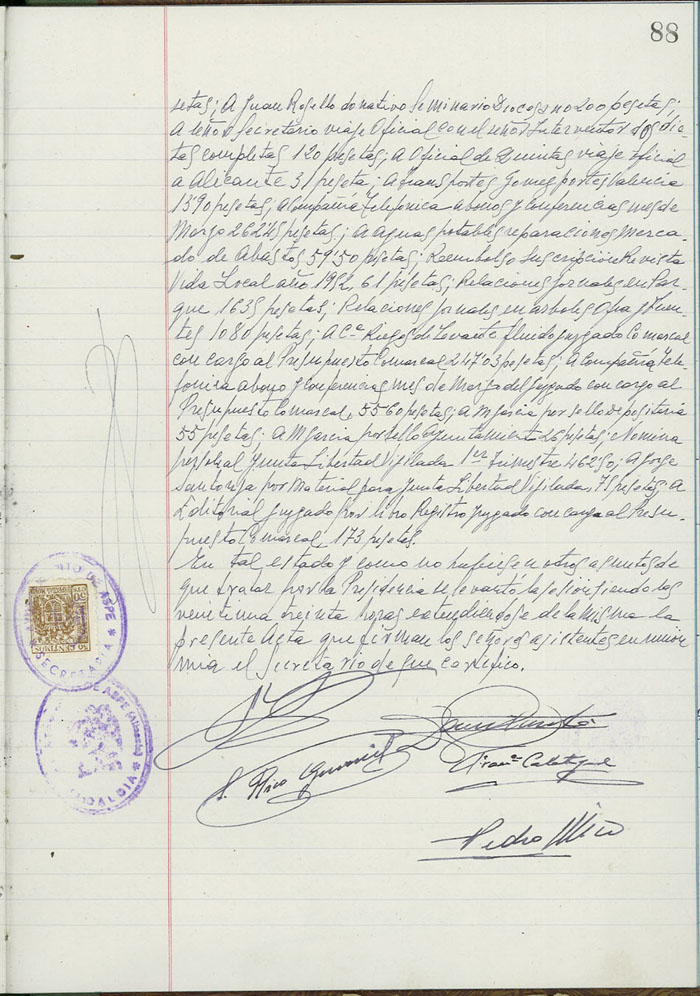 88
setas; A Juan Rosello donativo Seminario Diocesano 200 pesetas;
a señor Secretario viaje Oficial con el señor Interventor dos die-
tas completas 120 pesetas; A Oficial de Quintas viaje oficial
a Alicante 31 peseta; A transportes Gomez portes Valencia
13'90 pesetas; A Compañía Telefonica abonos y Conferencias mes de
Marzo 262'45 pesetas; A aguas potables reparaciones Merca-
do de Abastos 59'50 pesetas; Reembolso Suscripcion Revista
Vida Local año 1952, 61 pesetas; Relaciones jornales en Par-
que 1635 pesetas; Relaciones jornales en arboles Ofra y Fuen-
tes 1080 pesetas; A Cª Riegos de Levante fluido juzgado Comarcal
con cargo al Presupuesto Comarcal 247'03 pesetas; A Compañía Tele-
fonica abono y conferencias mes de Marzo del juzgado con cargo al
Presupuesto Comarcal, 55'60 pesetas; a M Garcia por sello depositaria
55 pesetas; A M Garcia por sello Ayuntamiento 26 pesetas; Nomina
personal Junta Libertad Vigilada 1er trimestre 462'50; A Jorge
Santonja por Material para Junta Libertad Vigilada, 75 pesetas; A
Editorial juzgado por libro Registro juzgado con cargo al Presu-
puesto Comarcal, 173 pesetas.
En tal estado y como no hubiese otros asuntos de
que tratar por la Presidencia se levantó la sesion siendo las
veintiuna treinta horas extendiendose de la misma la
presente Acta que firman los señores asistentes en union
mia el Secretario de que certifico.
S. Rico
Franº Calatayud
Pedro Mico
DE ASPE
SECRETARIA
50 CENTIMOS
DE ASPE (Alicante)
ALCALDIA